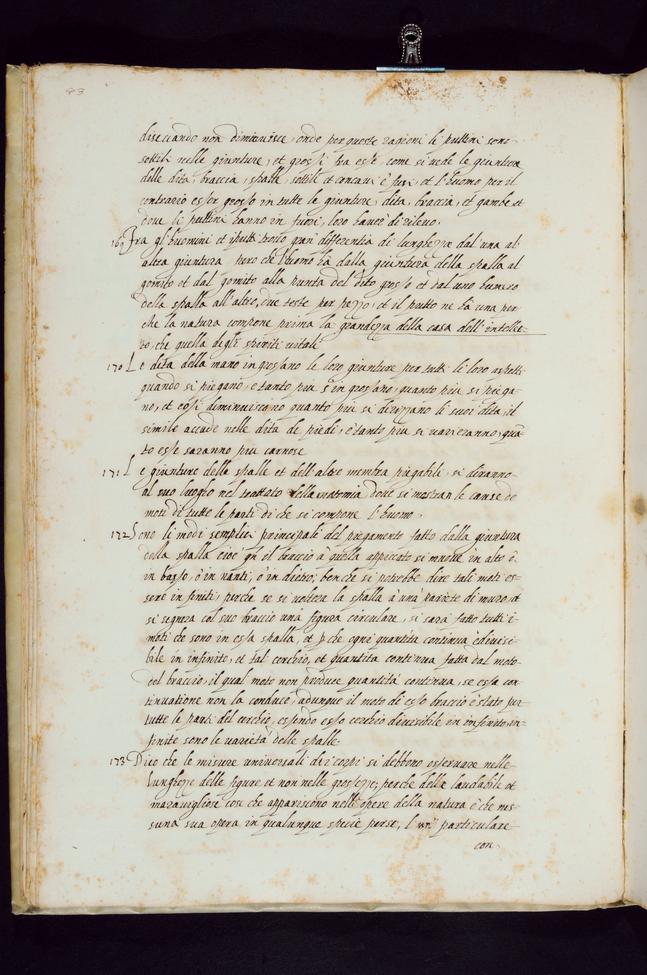 93
diseccando non diminuisce, onde per queste ragioni li puttini sono
sottili nelle giunture, et grossi fra esse come si vede le giunture
delle dita, braccia, spalle, sottili et concavi è fusi, et l'huomo per il
contrario esser grosso in tutte le giunture, dita, braccia, et gambe et
dove li puttini hanno in fuori, loro haver di rilevo.
169 Fra gl'huomini et i putti trovo gran differentia di lunghezza dal una al
altra giuntura pero che l'huomo hà dalla giuntura della spalla al
gomito et dal gomito alla punta del dito grosso et dal uno humero
della spalla all'altro, due teste per pezzo, et il putto ne hà una per
che la natura compone prima la grandezza della casa dell'intellet-
to, che quella degli spiriti vitali
170 Le dita della mano ingrossano le loro giunture per tutti li loro aspetti
quando si piegano, e tanto piu s'ingrossano, quanto piu si piega-
no, et cosi diminuiscono quanto piu si dirizzano li suoi dita, il
simile accade nelle dita de piedi, e tanto piu si varieranno, quã
to esse saranno piu carnose
171 Le giunture delle spalle et dell'altre membra piegabili, si diranno
al suo luogho nel trattato della anatomia dove se mostran le cause de
moti di tutte le parti di che si compone l'huomo.
172 Sono li modi semplici principali del piegamento fatto dalla giuntura
della spalla cioe qñ il braccio à quella appiccato si move in alto ò
in basso, ò in nanti, ò in dietro, benche si potrebbe dire tali moti es-
sere infiniti, perche se si voltera la spalla à una pariete di muro, et
si segnera col suo braccio una figura circulare, si sarà fatto tutti i
moti che sono in essa spalla, et p che ogni quantita continua è divisi-
bile in infinito, et tal cerchio, et quantita continua fatta dal moto
del braccio, il qual moto non produce quantità continua, se essa con
tinuatione non la conduce, adunque il moto di esso braccio è stato per
tutte le parti del cerchio, essendo esso cerchio divisibile in infinito, in-
finite sono le varietà delle spalle.
173 Dico che le misure universali de i corpi si debbono osservare nelle
lunghezze delle figure et non nelle grossezze, perche delle laudabile et
maravigliose cose che appariscono nelle opere della natura è che nes-
suna sua opera in qualunque specie perse, l'un particulare
con.